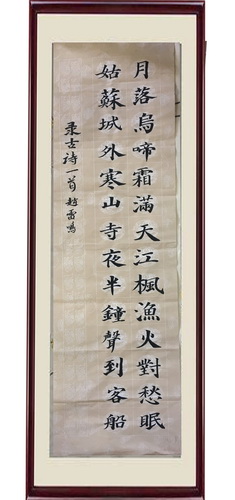 月落烏啼霜滿天江楓漁火對愁眠
姑蘇城外寒山寺夜半鐘聲到客船
录古诗一首趙雷鳴